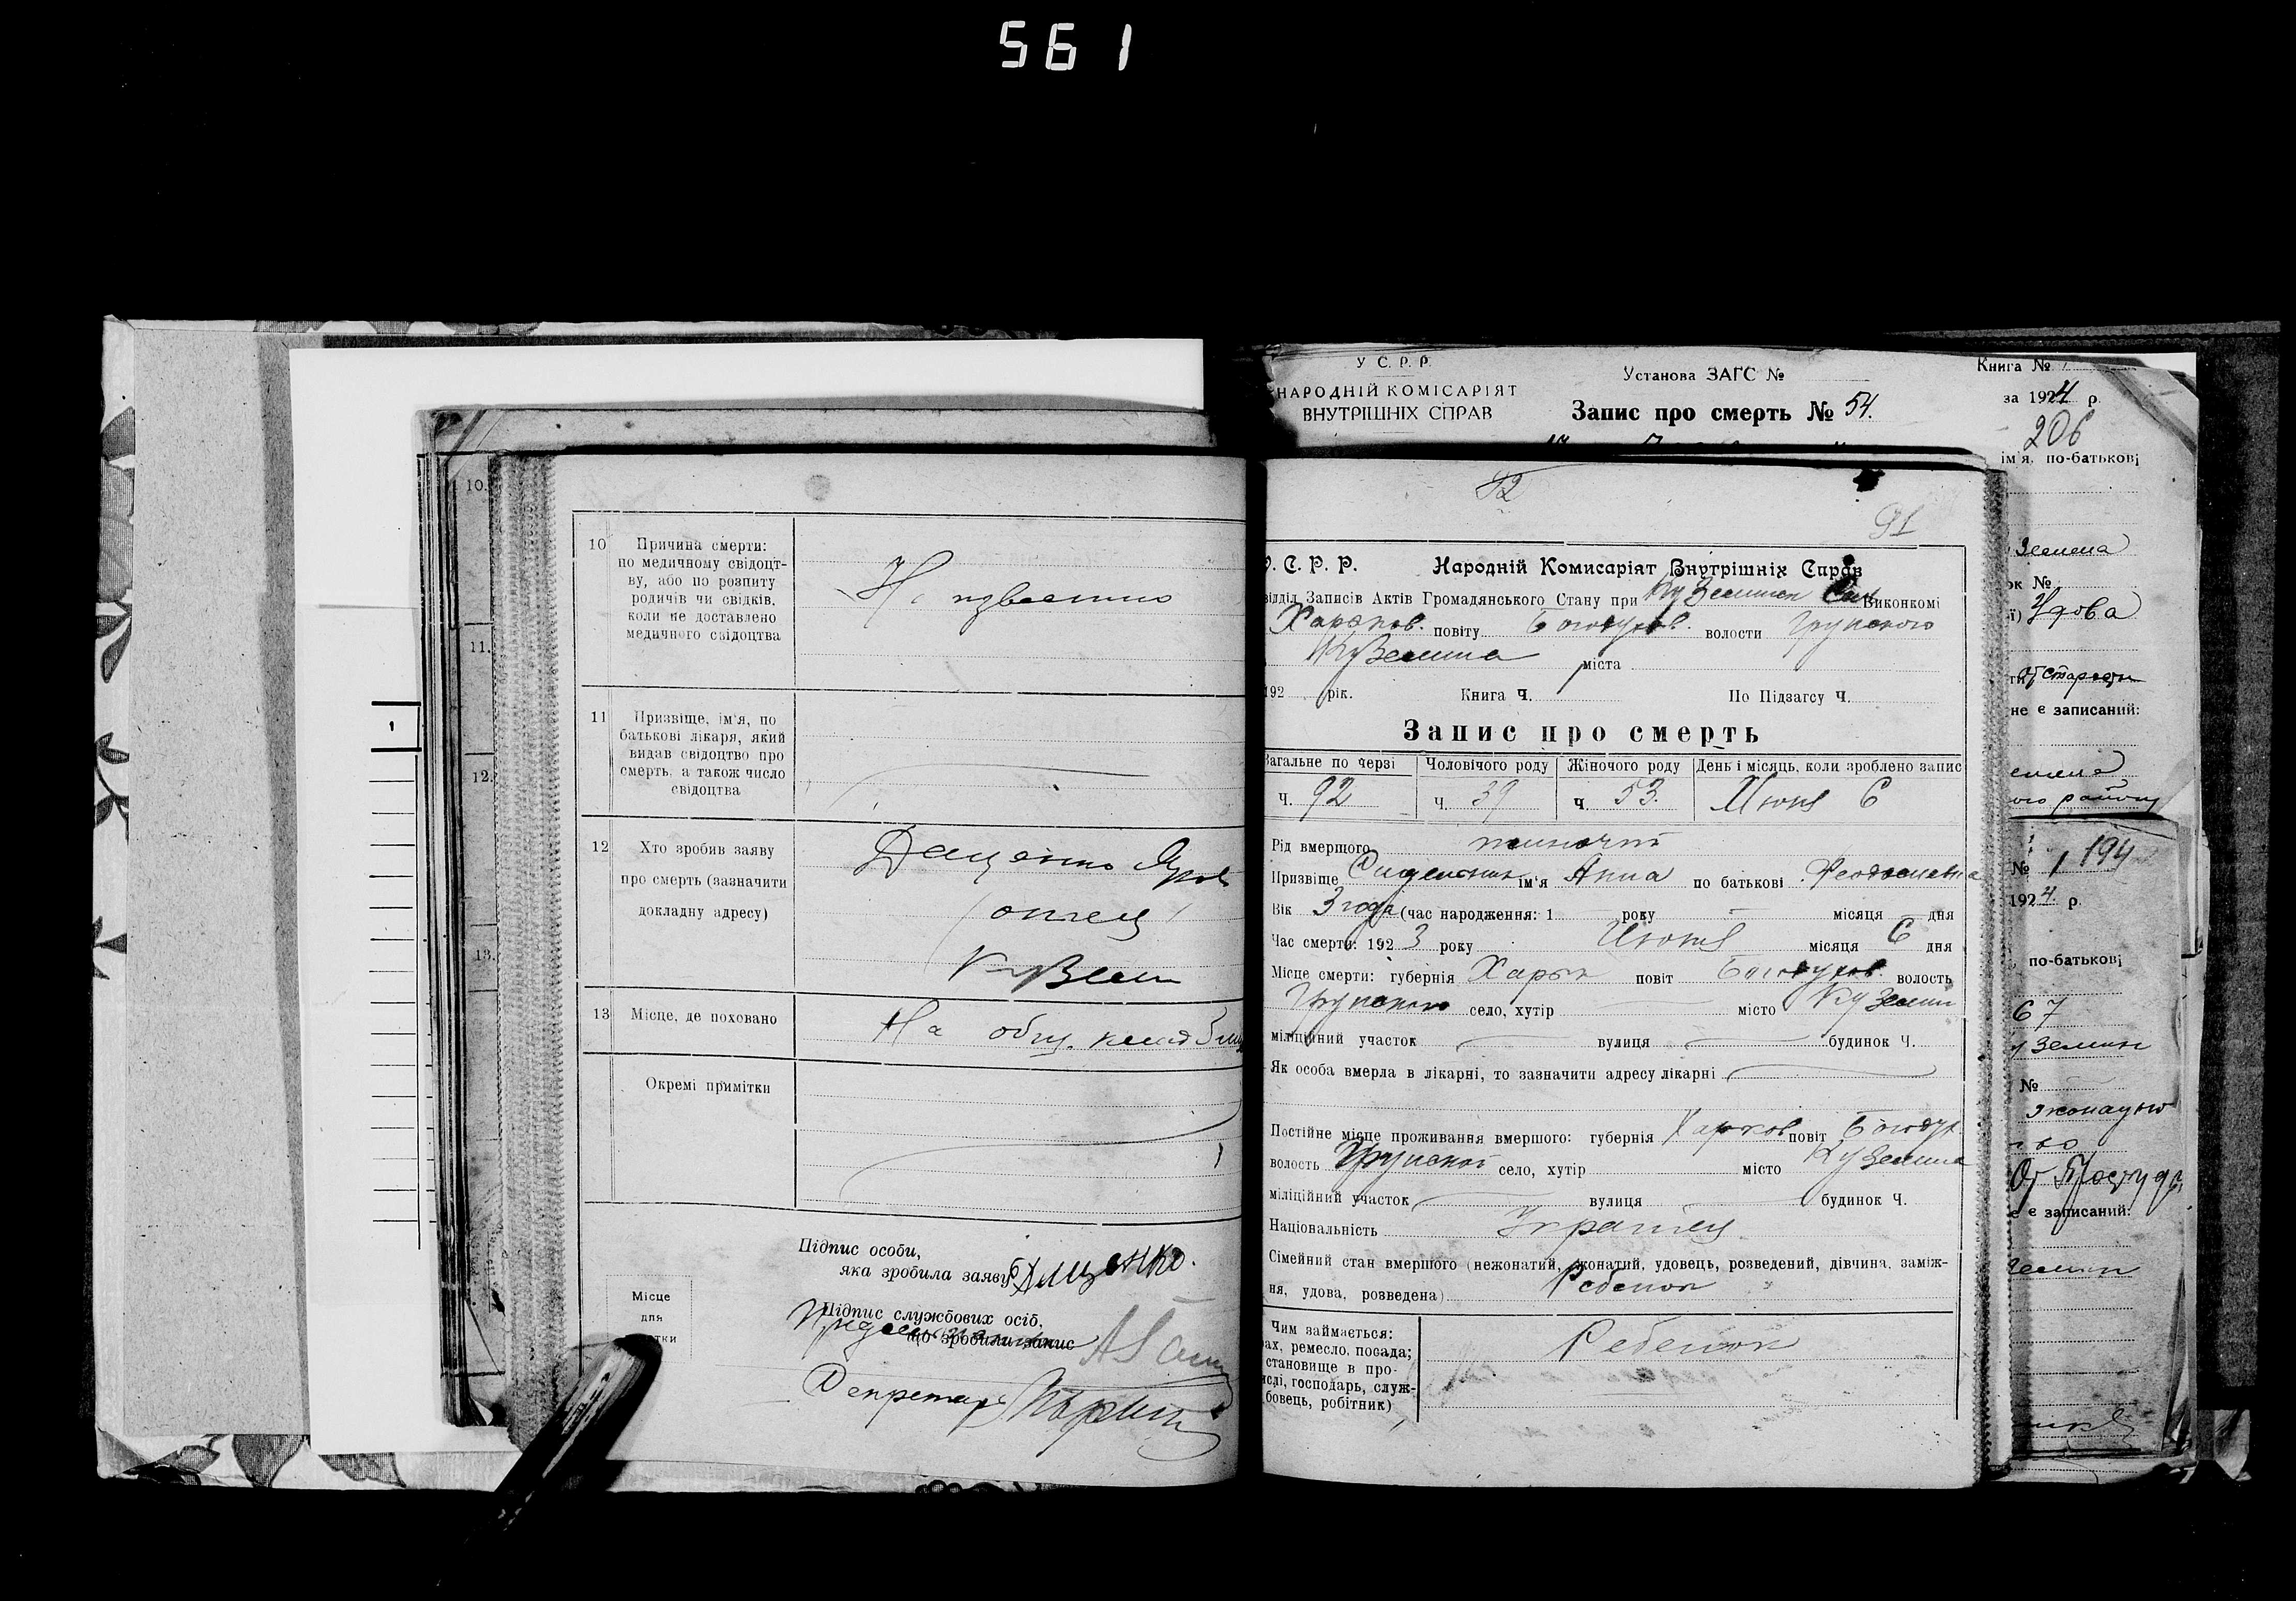 561
10
Причина смерти:
по медичному свідоцт-
ву, або по розпиту
родичів чи свідків,
коли не доставлено
медичного свідоцтва
11
Призвіще, ім'я, по
батькові лікаря, який
видав свідоцтво про
смерть, а також число
свідоцтва
12
Хто зробив заяву
про смерть (зазначити
докладну адресу)
Даценко
(отец)
Кузем
13
Місце, де поховано
На общ.
Окремі примітки
Підпис особи,
яка зробила заяву
Підпис службових осіб,
що зробили запис
Секретарь
Місце
для
10.
11.
12.
13.
1
У С. Р. Р.
НАРОДНІЙ КОМІСАРІЯТ
ВНУТРІШНІХ СПРАВ
Установа ЗАГС №
Запис про смерть № 54.
Книга №
за 1924 р.
206
ім'я, по-батькові
92
91
С. Р. Р. Народній Комисаріят Внутрішніх Справ
Записів Актів Громадянського Стану при Виконкомі
Харьков. повіту Богодухов. волости Грунского
Куземина міста
192 рік. Книга Ч. По Підзагсу Ч.
Запис про смерть
Загальне по черзі Чоловічого роду Жіночого роду День і місяць, коли зроблено запис
Ч. 92 Ч. 39 Ч. 53. Июня 6
Рід вмершого
Призвіще ім'я Анна по батькові
Вік 3 года (час народження: 1 року – місяця дня
Час смерти: 1923 року Июня місяця 6 дня
Місце смерти: губернія Харьк повіт Богодухов. волость
Грунского село, хутір місто Куземин
міліційний участок вулиця будинок Ч.
Як особа вмерла в лікарні, то зазначити адресу лікарні
Постійне місце проживання вмершого: губернія Харьков повіт Богодух.
волость Грунской село, хутір місто Куземина
міліційний участок вулиця будинок Ч.
Національність
Сімейний стан вмершого (нежонатий, жонатий, удовець, розведений, дівчина, заміж-
ня, удова, розведена) Ребенок
Чим займається:
ах, ремесло, посада;
становище в про-
господарь, служ-
бовець, робітник)
Ребенок
№
Удова
От старости
не є записаний:
№ 1 194
1924. р.
по-батькові
67
№
От простуды
є записаний: